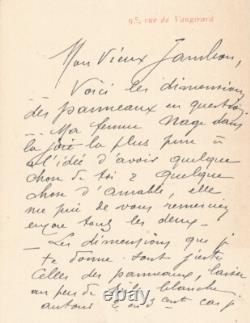 95, rue de Vaugirard
Mon vieux Jambon,
Voici les dimensions
des panneaux en question
Ma femme nage dans
la joie la plus pure à
l'idée d'avoir quelque
chon de toi & quelque
chon d'aimable, elle
me prie de vous remercier
encore tous les deux -
- Les dimensions que j
te donne sont justes
celles des panneaux, laisser
un peu de toile blanche
autour